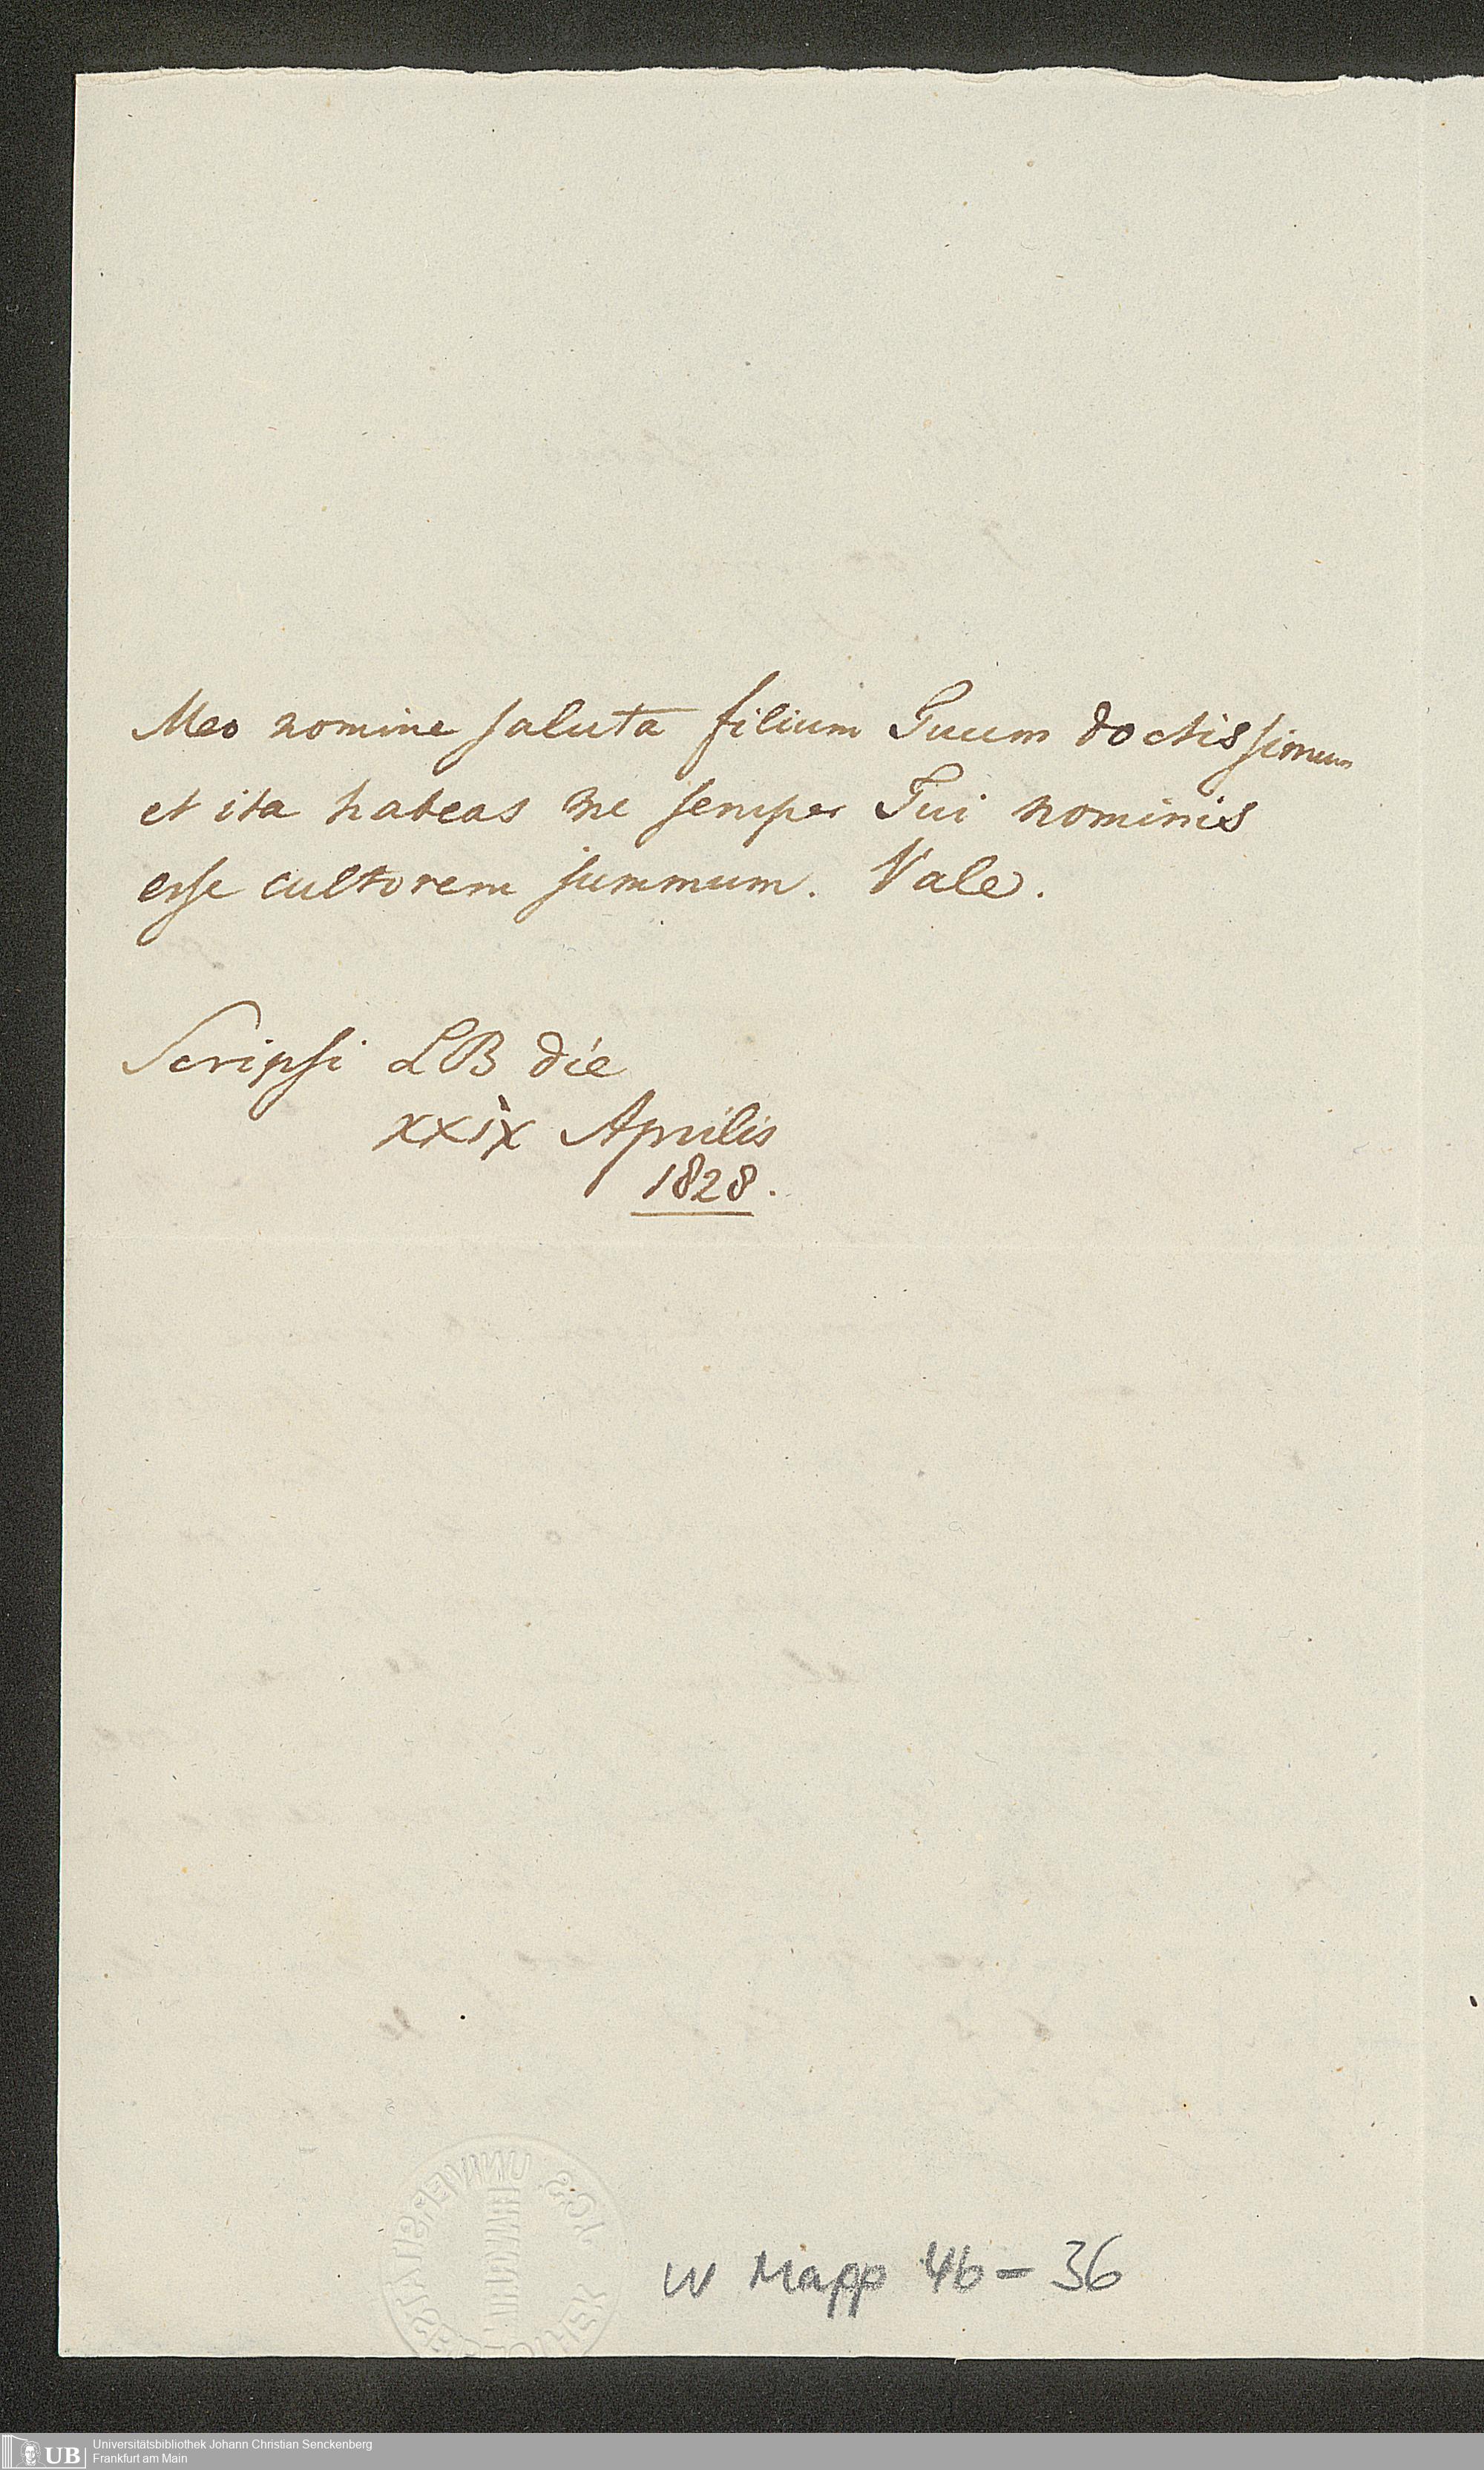 Meo nomine saluta filium Tuum doctissimum
et ita habeas me semper Tui nominis
esse cultorem summum. Vale.
Scripsi LB die
xxix Aprilis
1828.
W Mapp 46 - 36
UB
Universitätsbibliothek Johann Christian Senckenberg
Frankfurt am Main